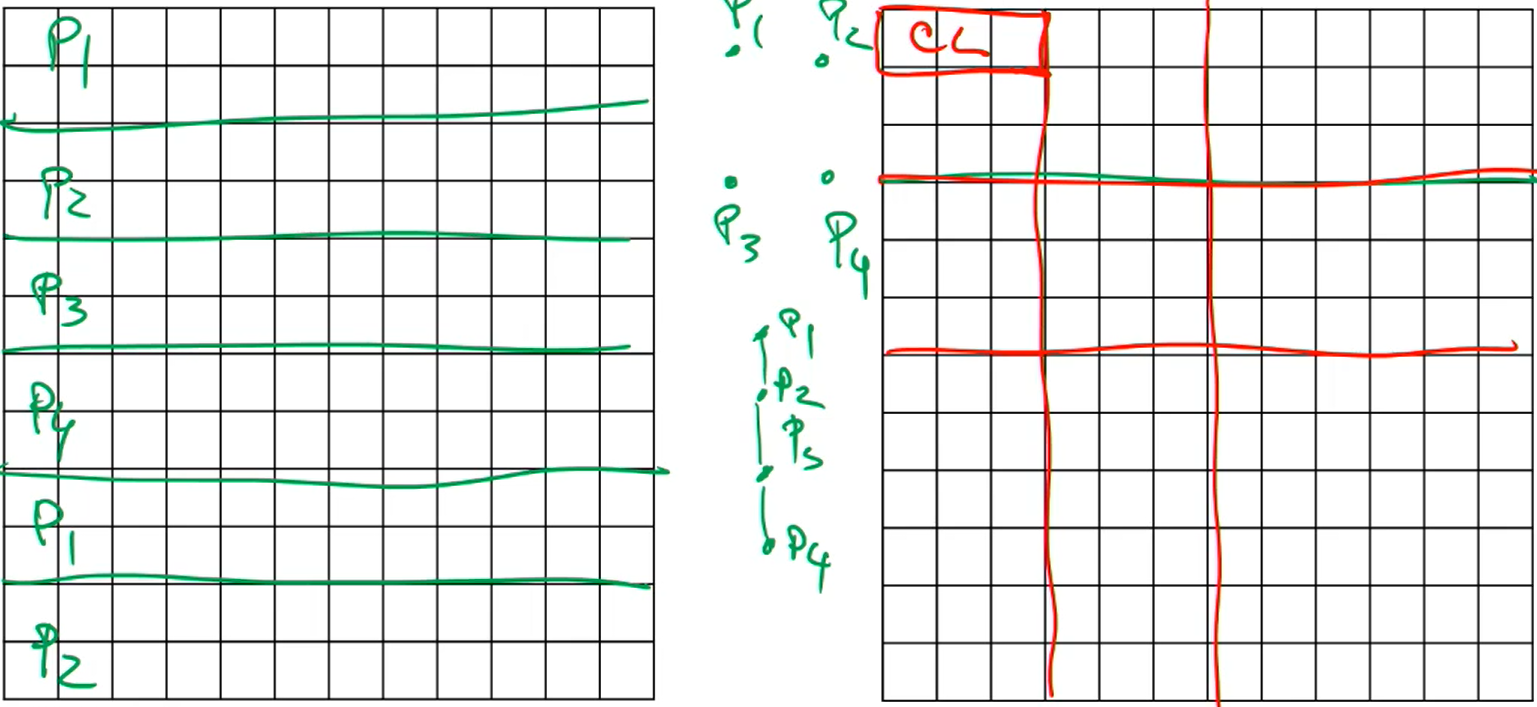 P1
P2
P3
P4
P1
P2
P1 P2
P3 P4
P1
P2
P3
P4
CL